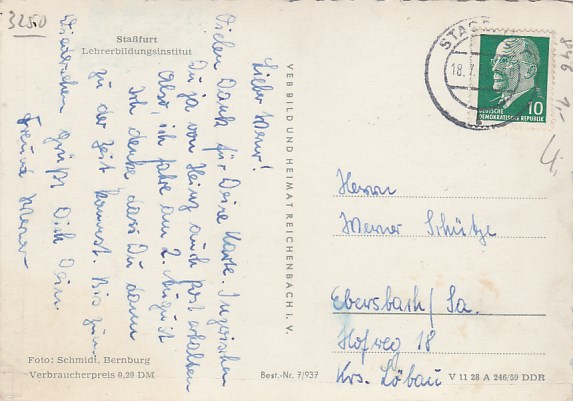 3250
Staßfurt
Lehrerbildungsinstitut
Lieber Werner!
Vielen Dank für Deine Karte. Inzwischen
Du ja von Heinz auch Post erhalten
Also, ich fahre am 2. August
Ich denke dass Du dann
zu der Zeit kommst. Bis zum
Wiedersehen grüßt Dich Dein
Freund Werner
Foto: Schmidt, Bernburg
Verbraucherpreis 0,20 DM
VEB BILD UND HEIMAT REICHENBACH I. V.
Best.-Nr. 7/937
18.7.
10
DEUTSCHE
DEMOKRATISCHE REPUBLIK
Herrn
Werner Schütze
Ebersbach/Sa.
Hofweg 18
Krs. Löbau
V 11 28 A 246/59 DDR